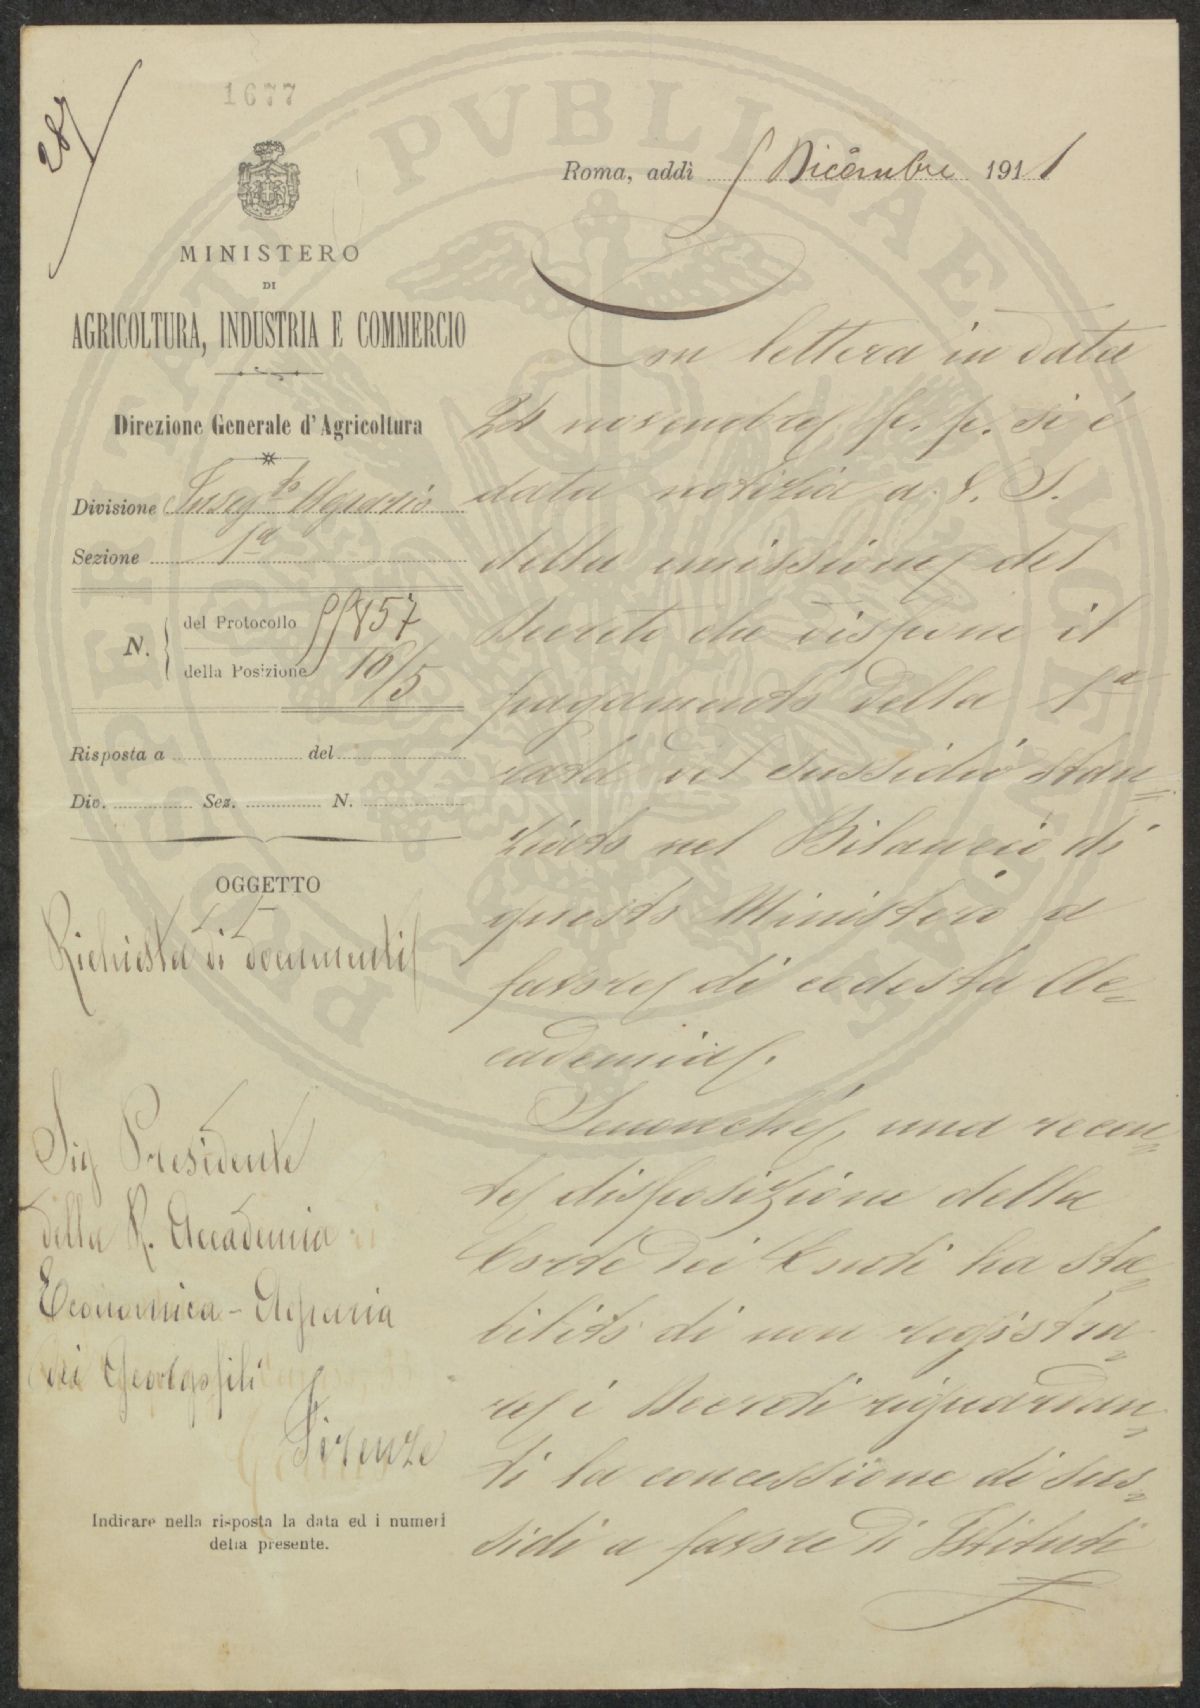 1677
Roma, addì 5 Dicembre 1911
MINISTERO
DI
AGRICOLTURA, INDUSTRIA E COMMERCIO
Direzione Generale d'Agricoltura
Divisione Inseg.to Agrario
Sezione 1a
N. del Protocollo
della Posizione 16/5
Risposta a del
Div. Sez. N.
OGGETTO
Richiesta di documenti
Sig Presidente
della R. Accademia
Economica-Agraria
dei Georgofili
Firenze
Indicare nella risposta la data ed i numeri
della presente.
Con lettera in data
24 novembre p. p. si è
data notizia a S.
della emissione del
Decreto che dispone il
pagamento della 1a
rata del sussidio stan=
ziato nel Bilancio di
questo Ministero a
favore di codesta Ac=
cademia.
Senonché, una recen=
te disposizione della
Corte dei Conti ha sta=
bilito di non registra=
re i Decreti riguardan=
ti la concessione di sus=
sidi a favore di Istituti
PROSPERITATI PVBLICAE AVGENDAE